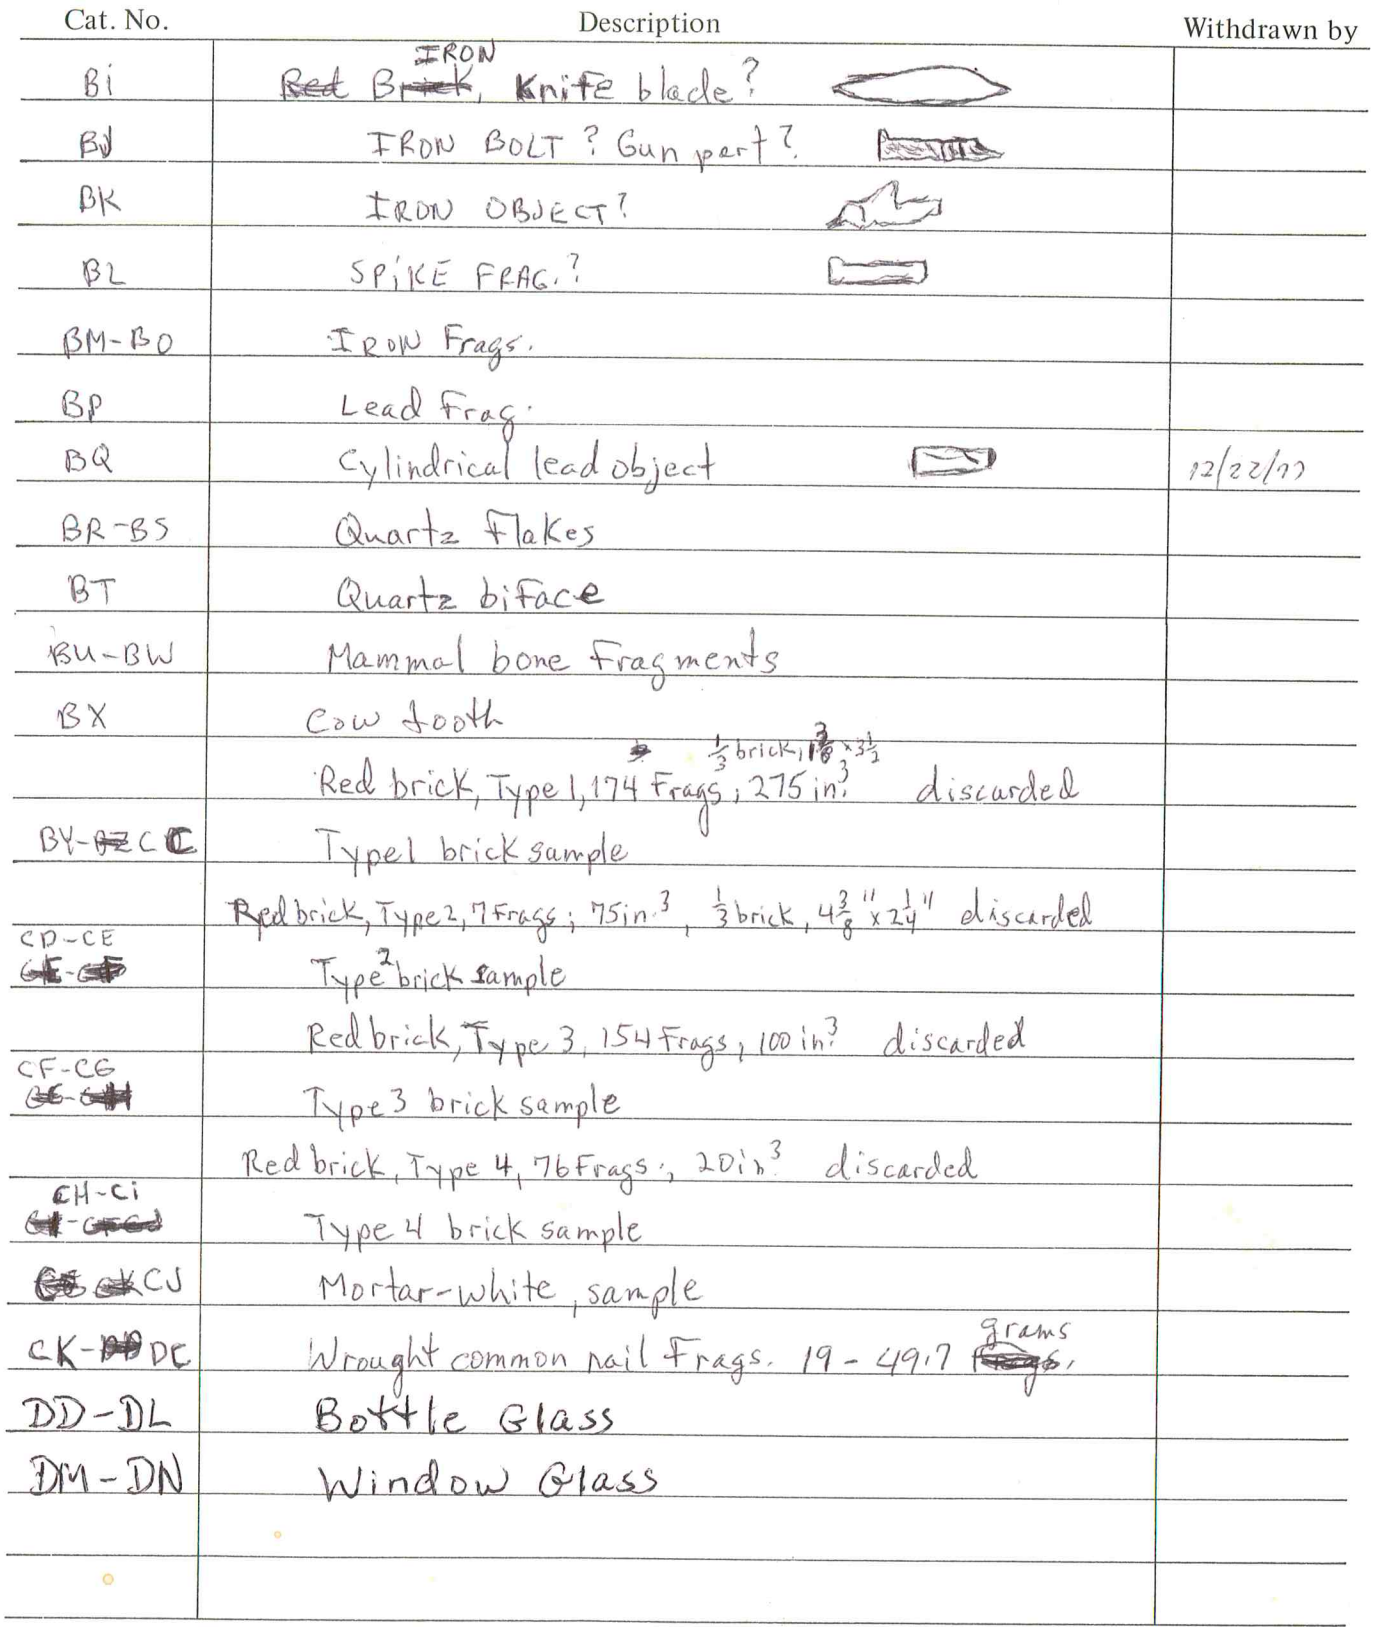 Cat. No. Description Withdrawn by
Bi Red Brick, IRON Knife blade?
BJ IRON BOLT? Gun part?
BK IRON OBJECT?
BL SPiKE FRAG.?
BM-BO IRON Frags.
BP Lead Frag.
BQ Cylindrical lead object 12/22/77
BR-BS Quartz Flakes
BT Quartz biface
BU-BW Mammal bone Fragments
BX Cow tooth
1/3 brick, 3/8 x 3 1/2
Red brick, Type 1, 174 Frags; 275 in.3 discarded
BY-BZ CC Type 1 brick sample
Red brick, Type 2, 7 Frags; 75 in.3, 1/3 brick, 4 3/8" x 2 1/4" discarded
CD-CE
Type 2 brick sample
Red brick, Type 3, 154 Frags, 100 in.3 discarded
CF-CG
Type 3 brick sample
Red brick, Type 4, 76 Frags., 20 in.3 discarded
CH-Ci
Type 4 brick sample
CJ Mortar-white, sample
grams
CK- DC Wrought common nail Frags. 19 - 49.7 Frags.
DD-DL Bottle Glass
DM-DN Window Glass